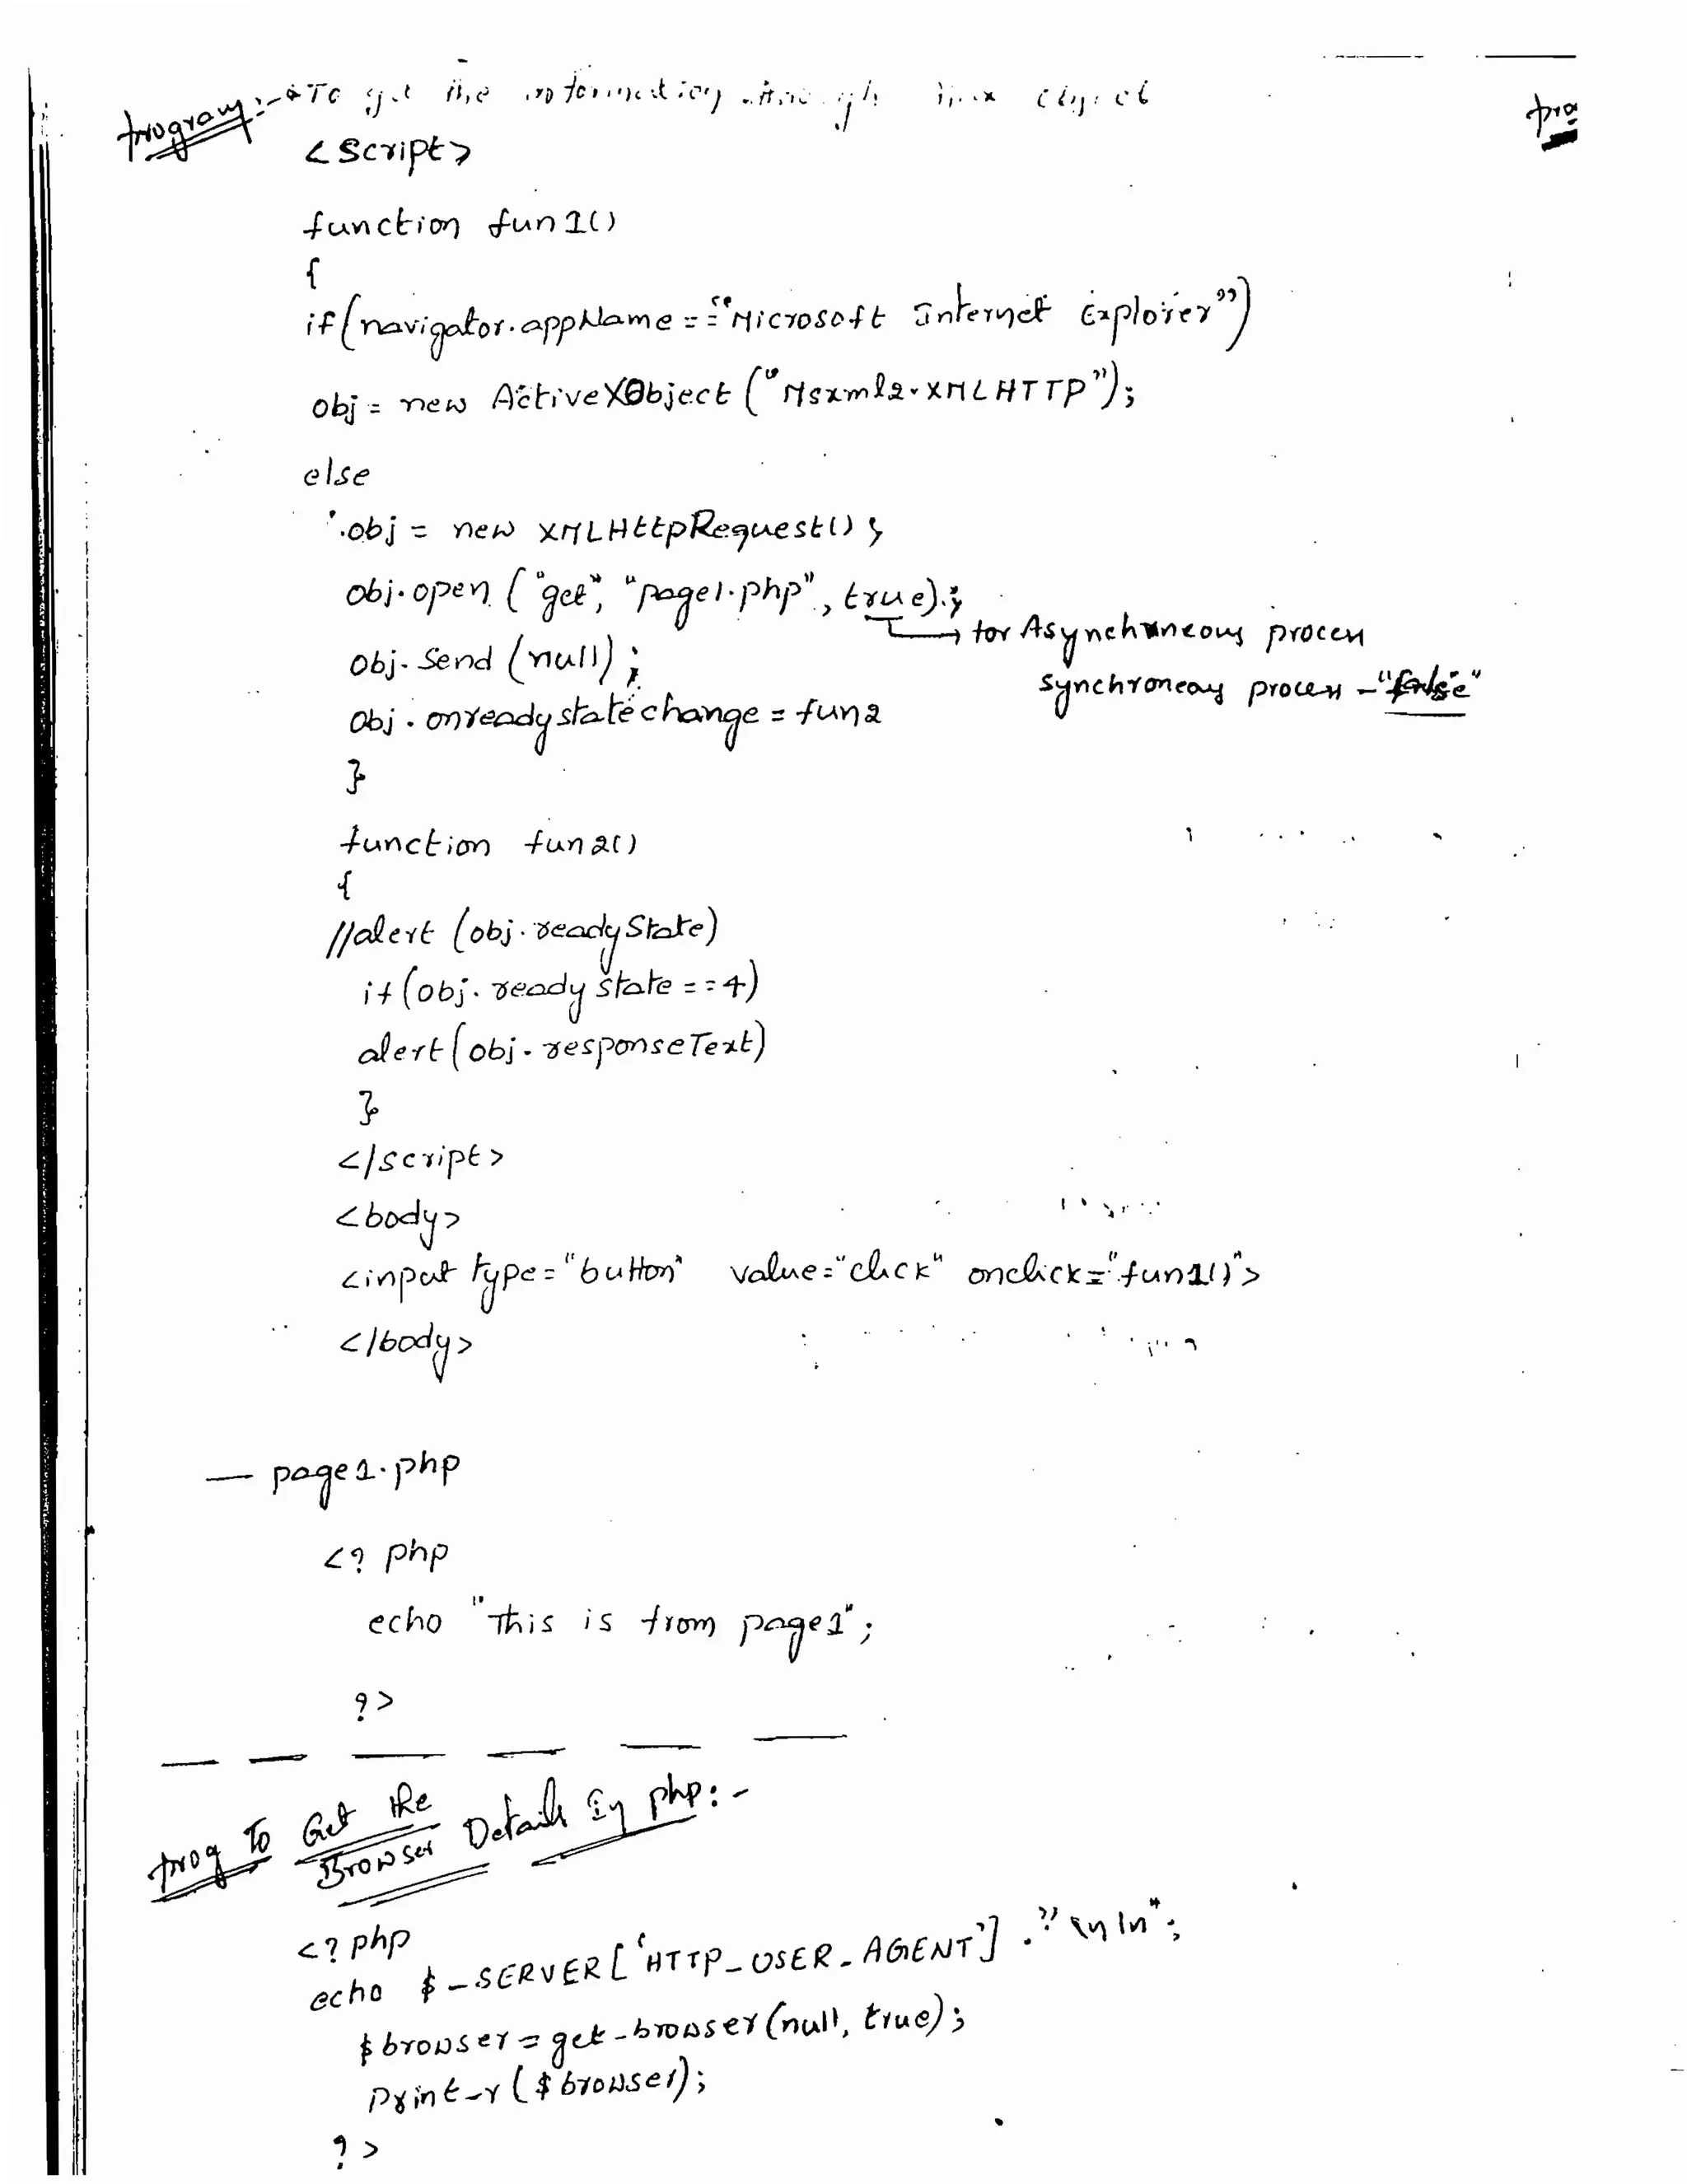 program:- To get the information through Ajax object
pro
<script>
function fun1()
{
if(navigator.appName=="Microsoft Internet Explorer")
obj = new ActiveXObject ("Msxml2.XMLHTTP");
else
obj = new XMLHttpRequest();
obj.open ("get", "page1.php", true);
for Asynchroneous process
obj.send (null);
synchroneous process - "false"
obj.onreadystatechange = fun2
}
function fun2()
{
//alert (obj.readyState)
if (obj.readyState == 4)
alert (obj.responseText)
}
</script>
<body>
<input type="button" value="click" onclick="fun1()">
</body>
— page1.php
<? php
echo "This is from page1";
?>
prog To Get the Browser Details in php:-
<? php
echo $_SERVER['HTTP_USER_AGENT'] . "\n\n";
$browser = get_browser(null, true);
print_r ($browser);
?>